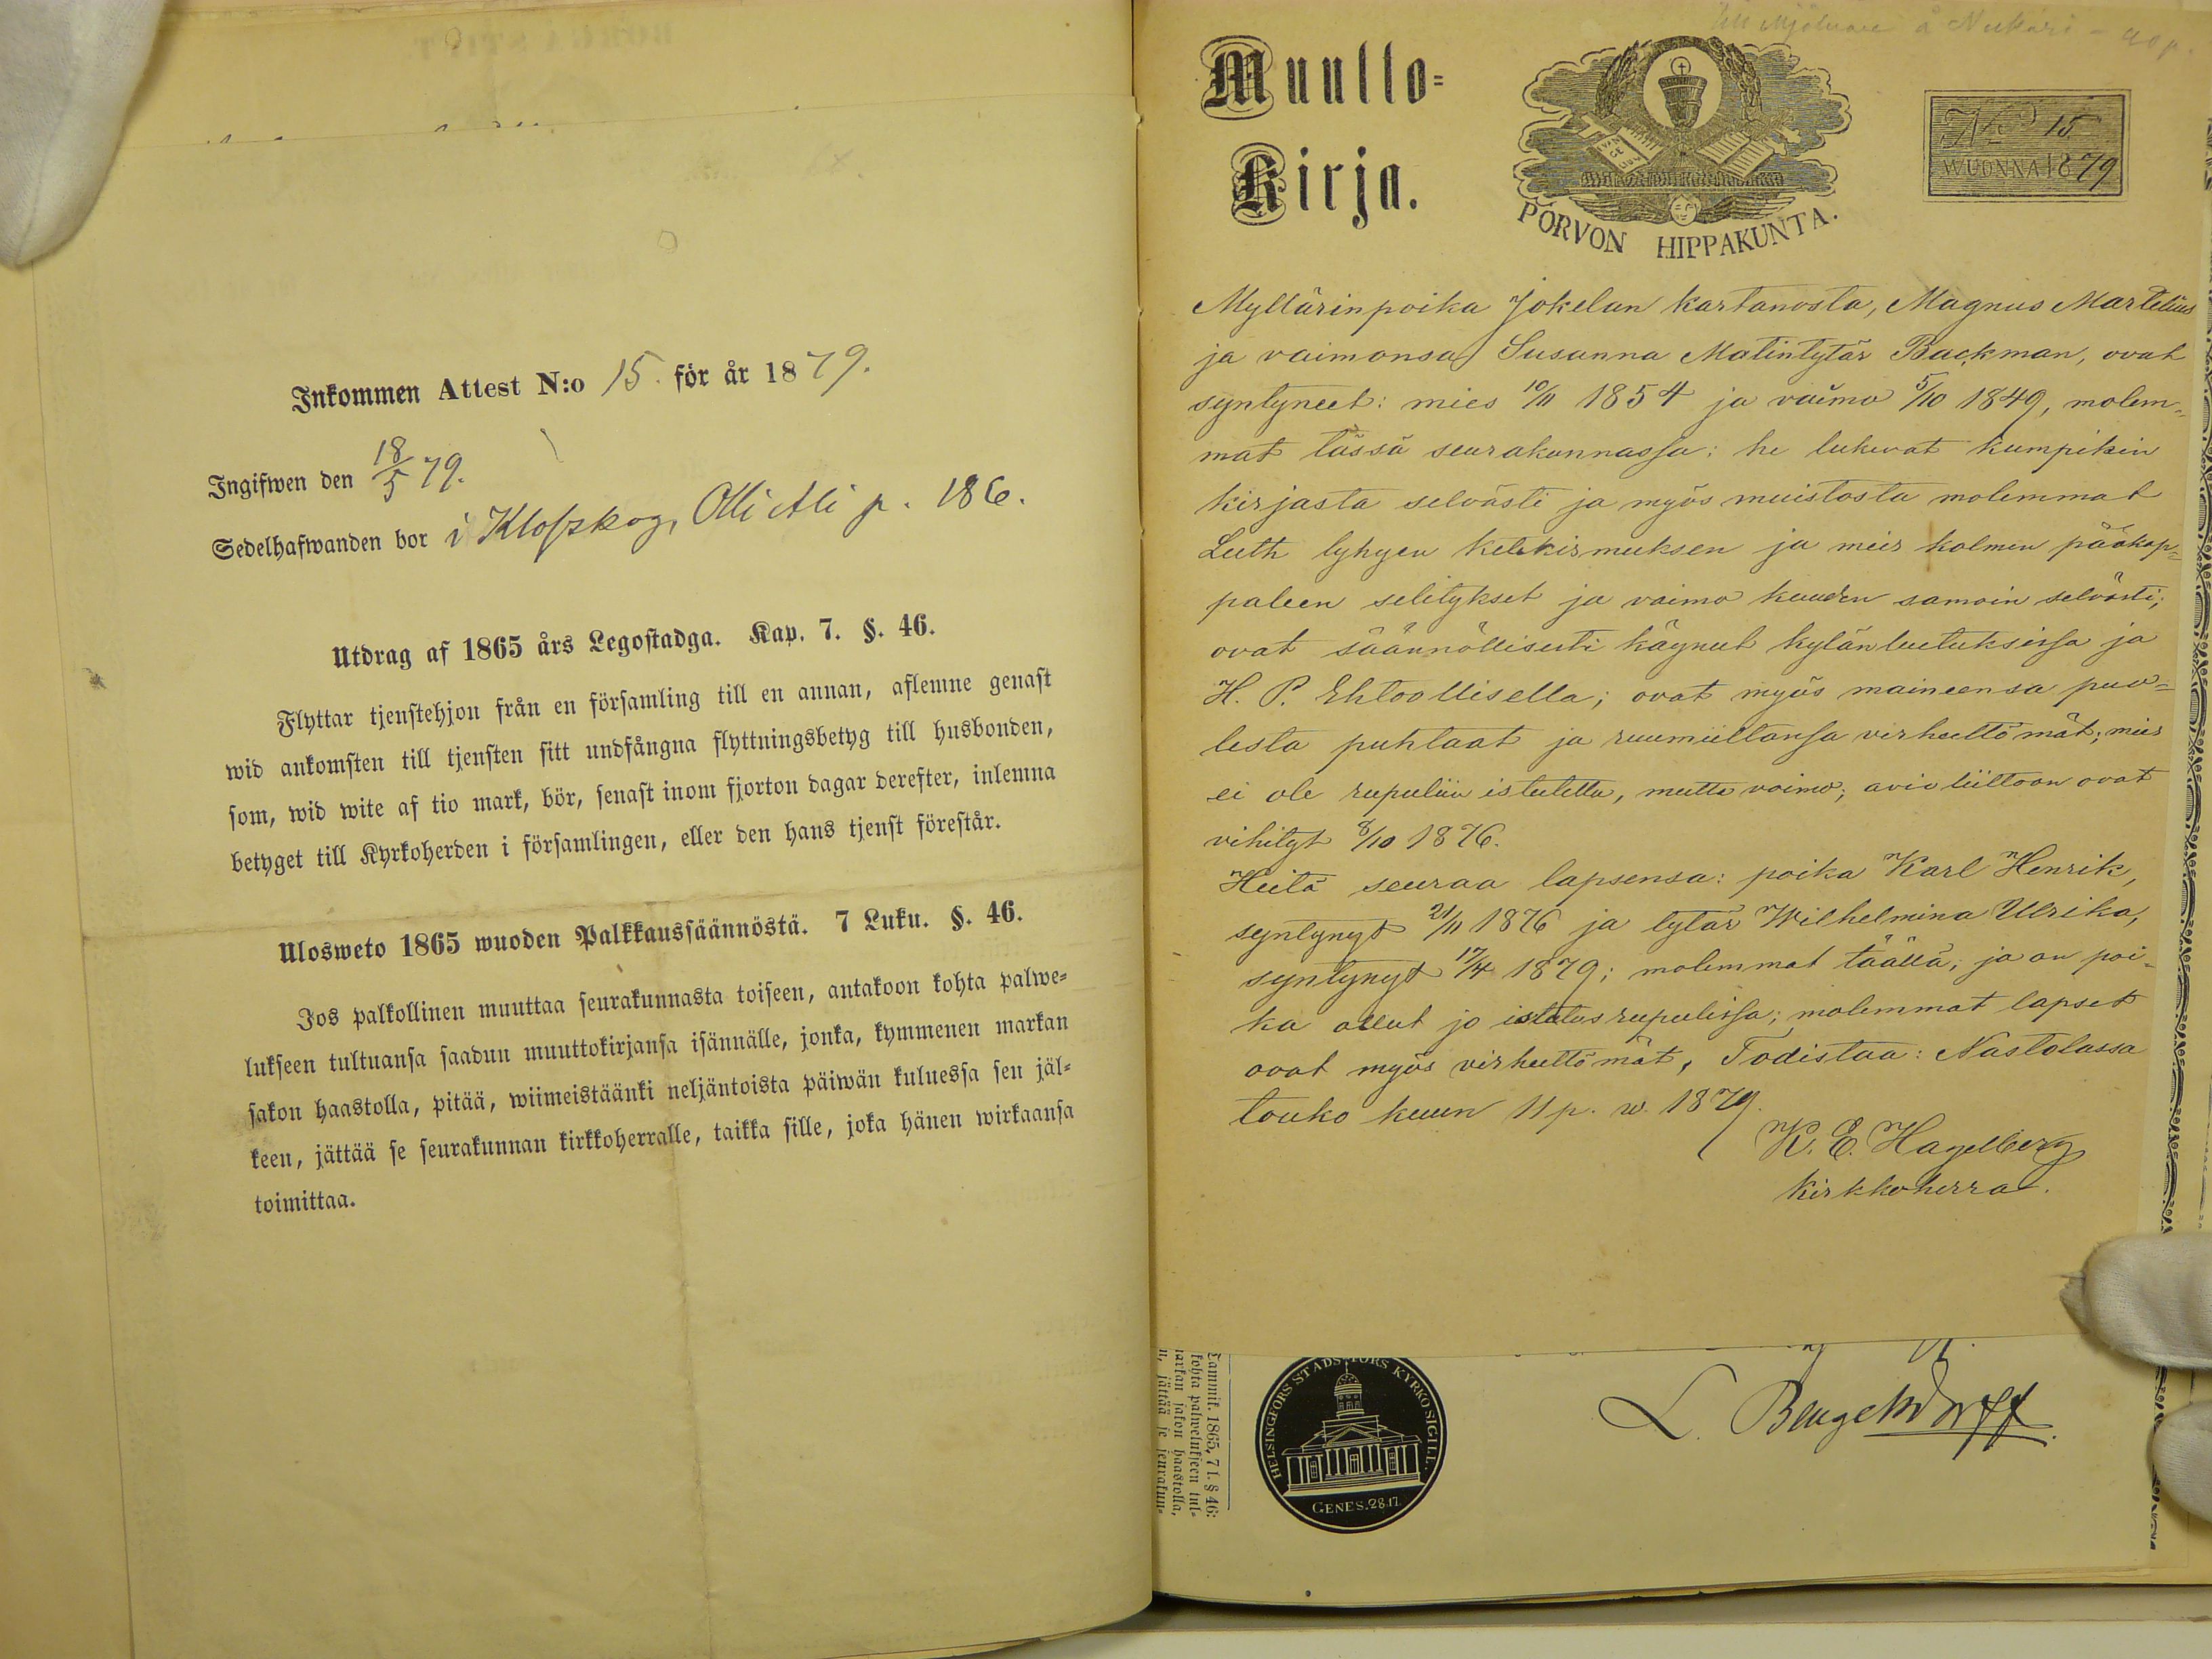 Inkommen Attest N:o 15. för år 1879.
Ingifwen den 18/5 79.
Sedelhafwanden bor i Klofskog, Olli Ali p. 186.
Utdrag af 1865 års Legostadga. Kap. 7. §. 46.
Flyttar tjenstehjon från en församling till en annan, aflemne genast
wid ankomsten till tjensten sitt undfångna flyttningsbetyg till husbonden,
som, wid wite af tio mark, bör, senast inom fjorton dagar derefter, inlemna
betyget till Kyrkoherden i församlingen, eller den hans tjenst förestår.
Ulosweto 1865 wuoden Palkkaussäännöstä. 7 Luku. §. 46.
Jos palkollinen muuttaa seurakunnasta toiseen, antakoon kohta palwe=
lukseen tultuansa saadun muuttokirjansa isännälle, jonka, kymmenen markan
sakon haastolla, pitää, wiimeistäänki neljäntoista päiwän kuluessa sen jäl=
keen, jättää se seurakunnan kirkkoherralle, taikka sille, joka hänen wirkaansa
toimittaa.
Till Mjölnare å Nukari - 40 p.
Muutto=
Kirja.
EVANGELIUM
PORVON HIPPAKUNTA.
No 15
WUONNA 1879
Myllärinpoika Jokelan kartanosta, Magnus Martelius
ja vaimonsa Susanna Matintytär Backman, ovat
syntyneet: mies 10/11 1854 ja vaimo 5/10 1849, molem=
mat tässä seurakunnassa: he lukevat kumpikin
kirjasta selvästi ja myös muistosta molemmat
Luth lyhyen Katekismuksen ja mies kolmen pääkap=
paleen selitykset ja vaimo kuuden samoin selvästi;
ovat säännöllisesti käynut kylänluetuksissa ja
H. P. Ehtoollisella; ovat myös maineensa puo=
lesta puhtaat ja ruumiiltansa virheettömät; mies
ei ole rupuliin istutettu, mutta vaimo; avioliittoon ovat
vihityt 8/10 1876.
Heitä seuraa lapsensa: poika Karl Henrik,
syntynyt 21/11 1876 ja tytär Wilhelmina Ulrika,
syntynyt 17/4 1879; molemmat täällä; ja on poi=
ka ollut jo istutus rupulissa; molemmat lapset
ovat myös virheettömät, Todistaa: Nastolassa
touko kuun 11 p. w. 1879.
K. E. Hagelberg
Kirkkoherra.
Tammik. 1865, 7 l. § 46:
kohta palwelukseen tul=
markan sakon haastolla,
n, jättää se seurakun=
HELSINGFORS STADS FÖRS KYRKO SIGILL.
GENES. 28.17.
L. Bengelsdorff.